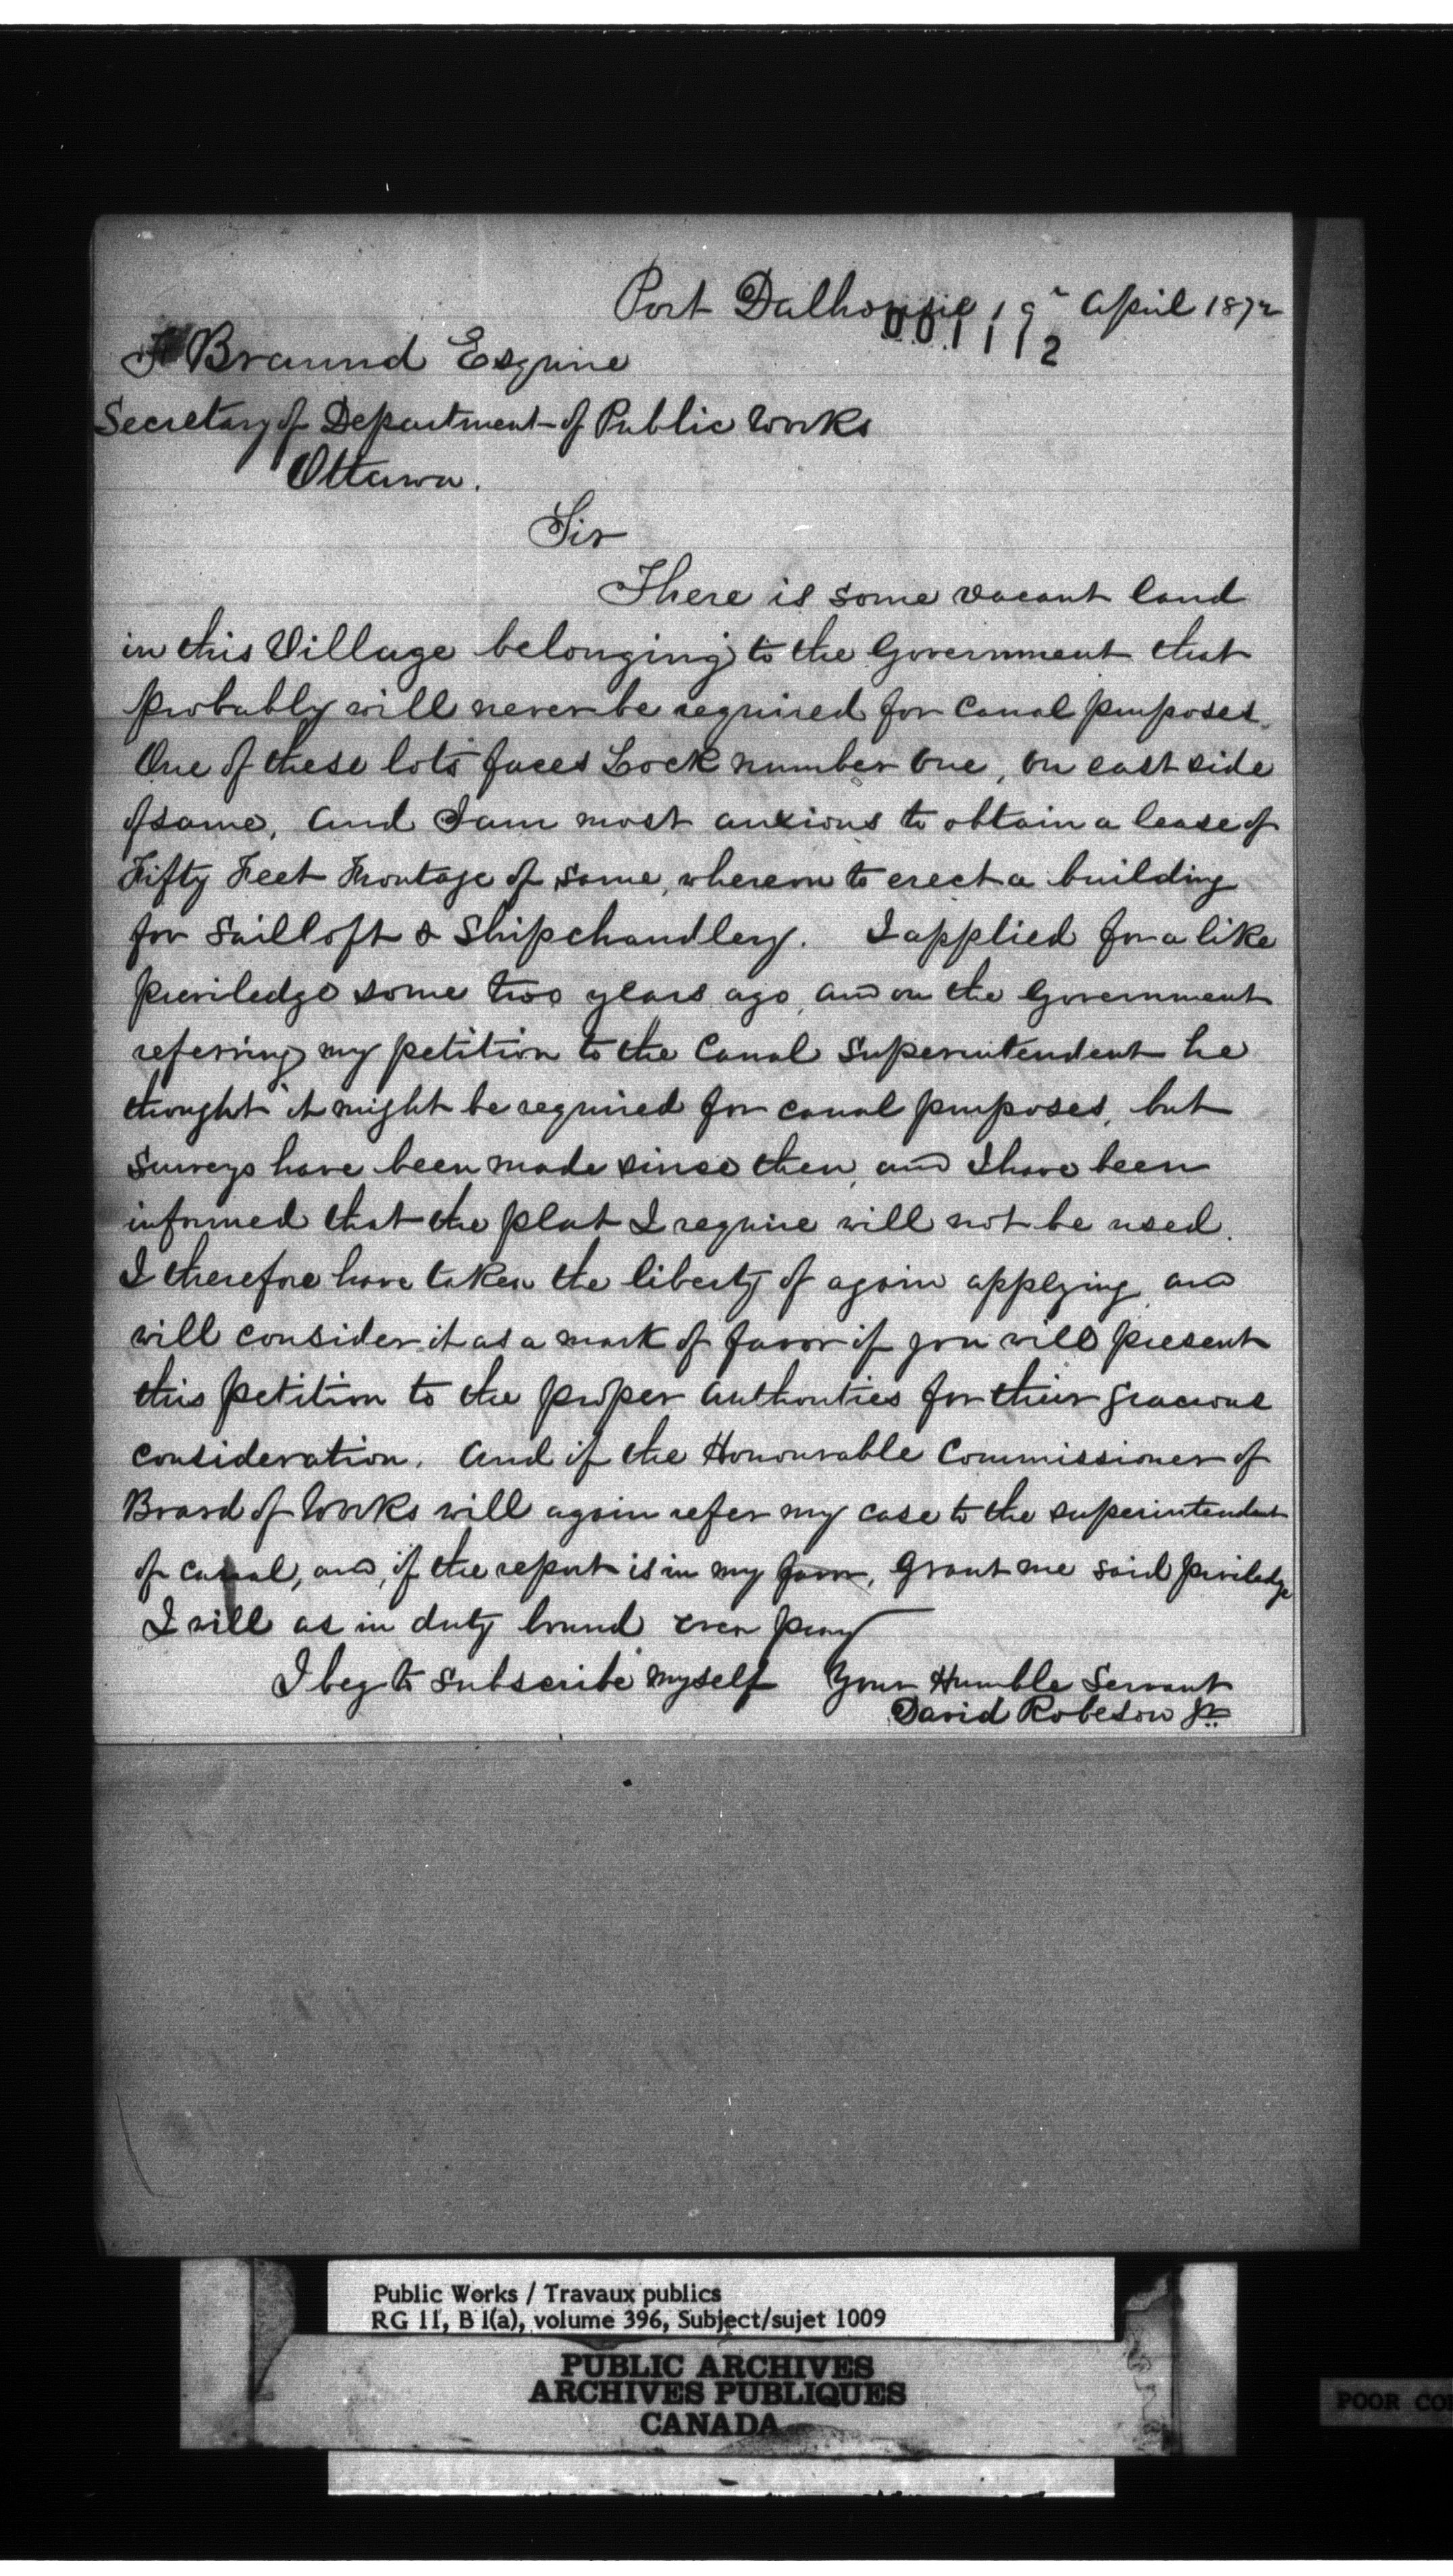 Port Dalhousie 19" April 1872
001112
F Braund Esquire
Secretary of Department of Public Works
Ottawa.
Sir
There is some vacant land
in this Village belonging to the Government that
probably will never be required for Canal purposes.
One of these lots faces Lock number one, on east side
of same, and I am most anxious to obtain a lease of
Fifty Feet Frontage of same, whereon to erect a building
for Sailloft & Shipchandlery. I applied for a like
priviledge some two years ago, and on the Government
referring my petition to the Canal Superintendent he
thought it might be required for canal purposes, but
Surveys have been made since then, and I have been
informed that the plat I require will not be used.
I therefore have taken the liberty of again applying and
will consider it as a mark of favor if you will present
this petition to the proper authorities for their gracious
consideration. And if the Honourable Commissioner of
Board of Works will again refer my case to the superintendent
of canal, and, if the report is in my favor, grant me said priviledge
I will as in duty bound ever pray
I beg to subscribe myself Your Humble Servant
David Robeson Jr.
Public Works / Travaux publics
RG 11, B 1(a), volume 396, Subject/sujet 1009
PUBLIC ARCHIVES
ARCHIVES PUBLIQUES
CANADA
POOR CO